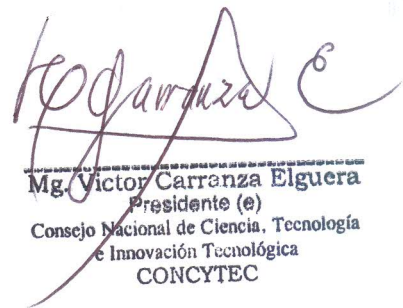 Carranza E
Mg. Victor Carranza Elguera
Presidente (e)
Consejo Nacional de Ciencia, Tecnología
e Innovación Tecnológica
CONCYTEC